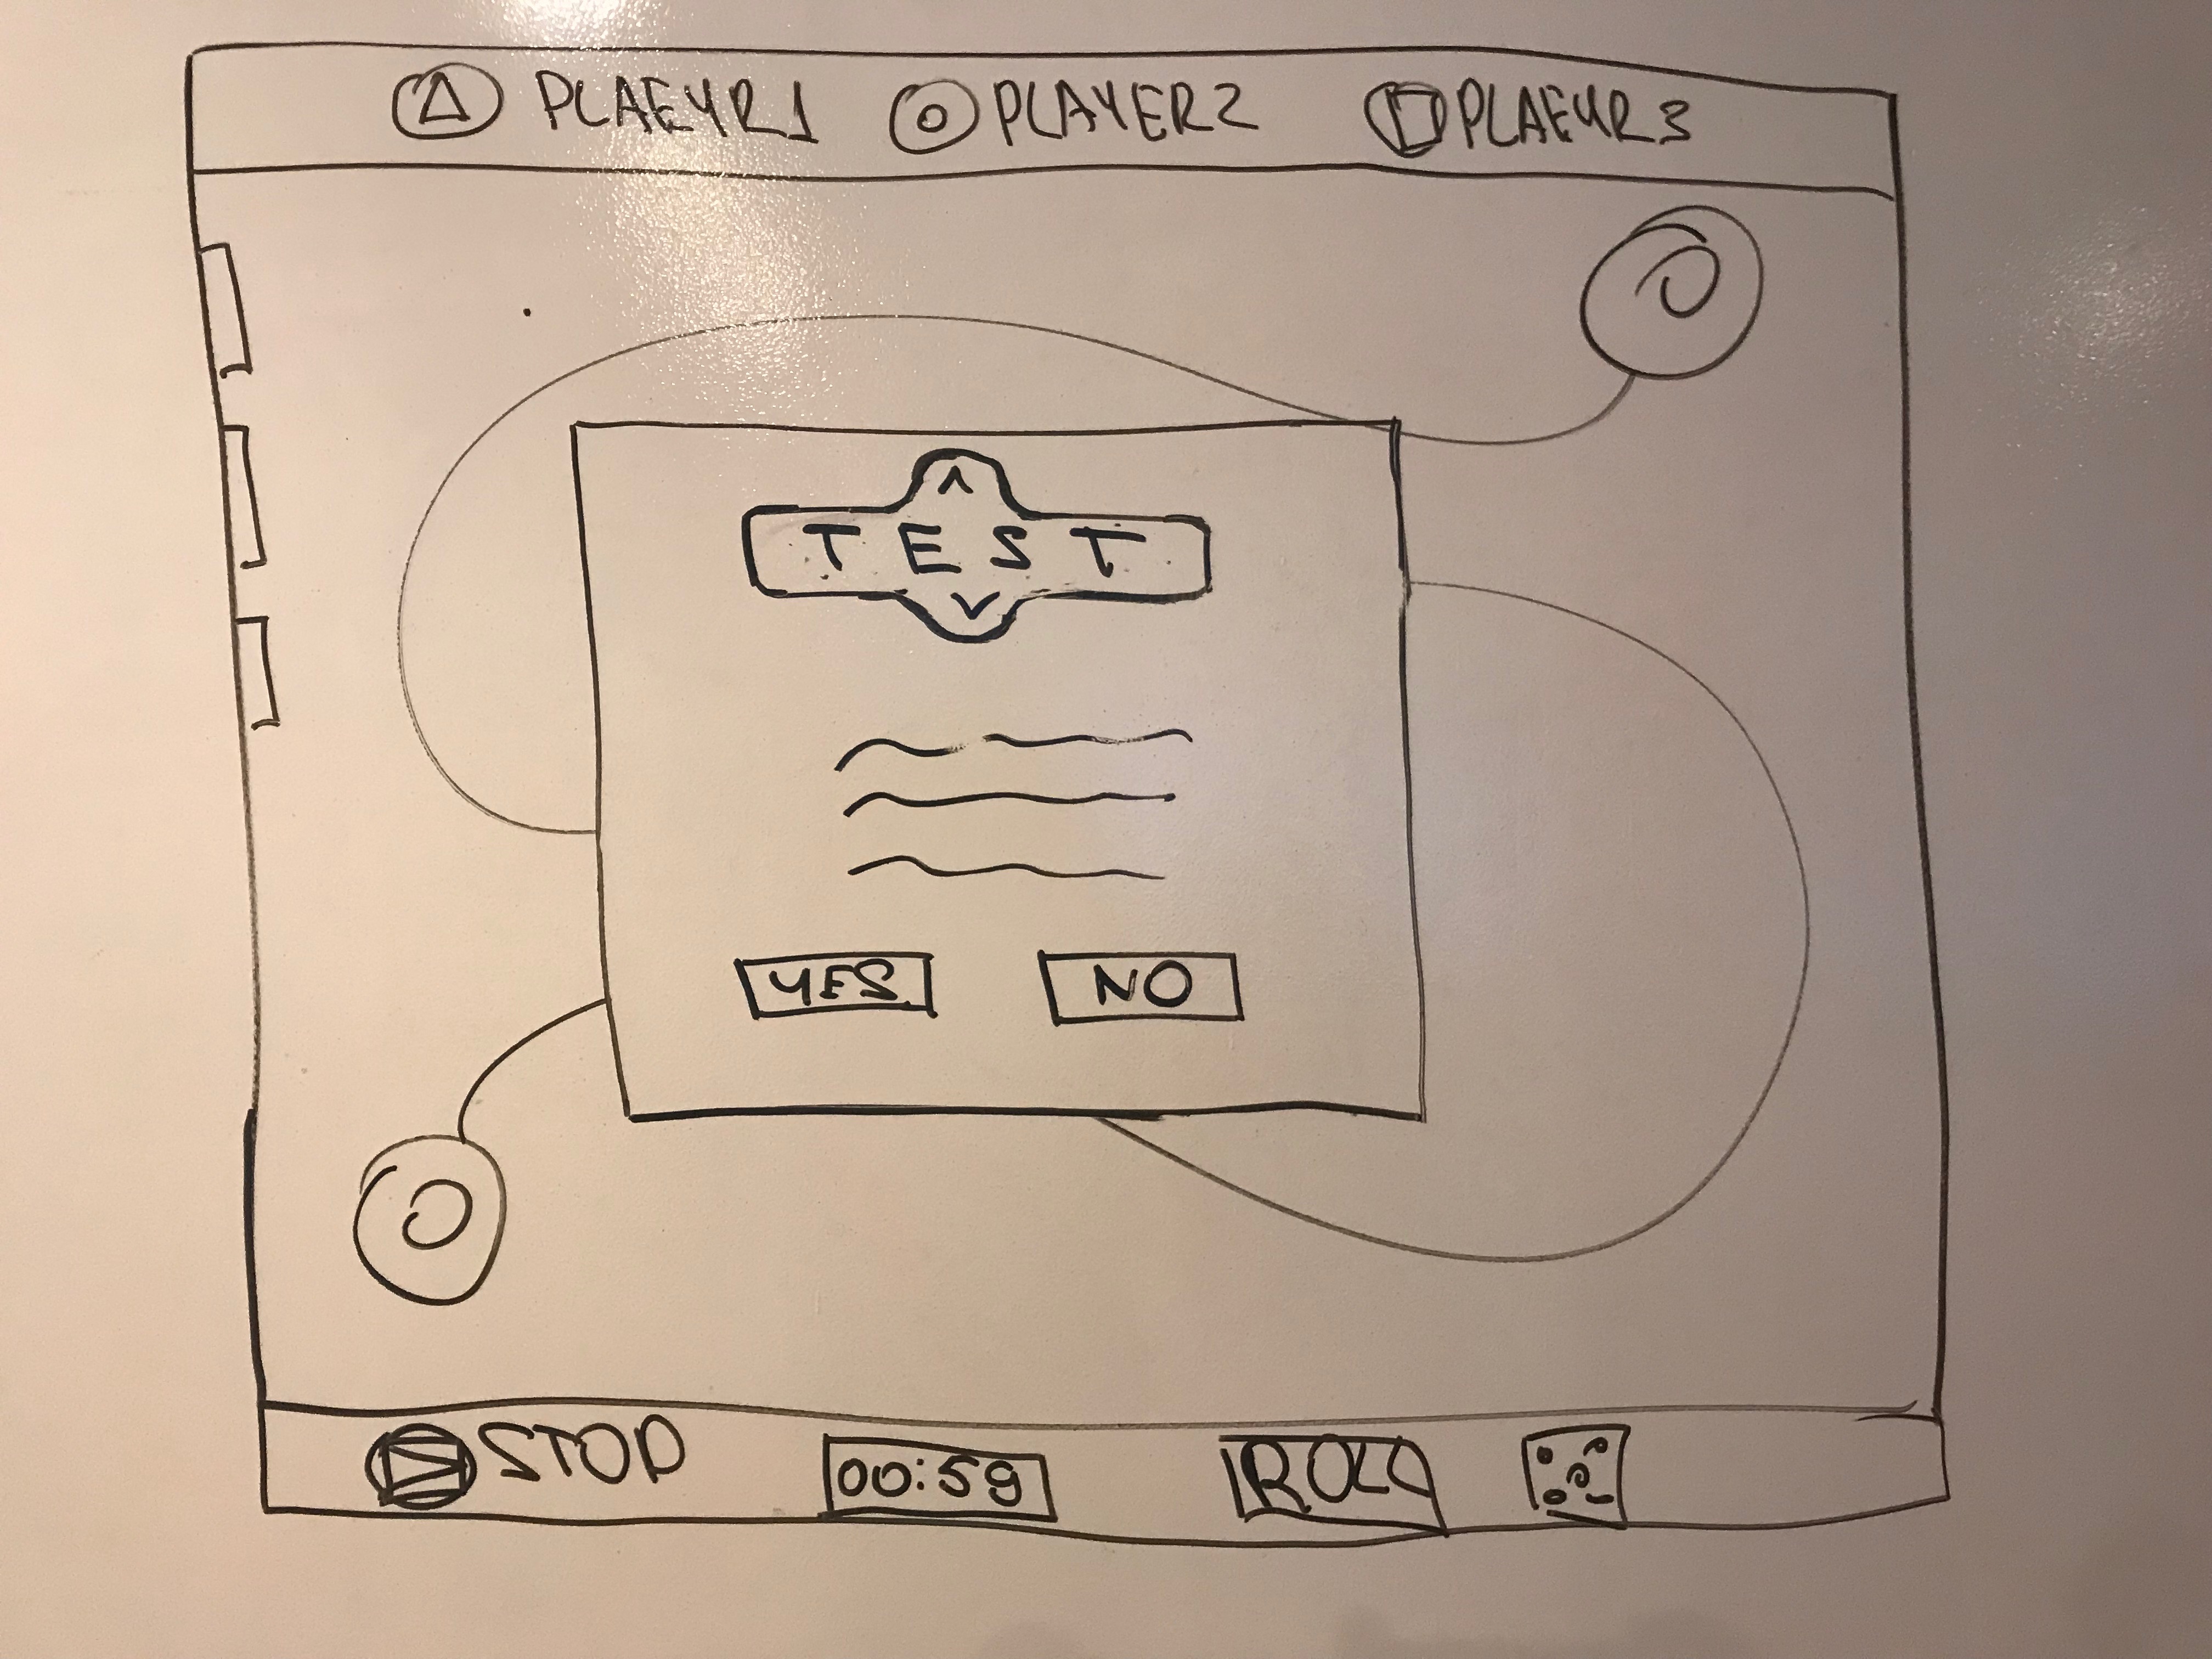 PLAEYR1 PLAYER2 PLAEYR3
TEST
YES NO
STOP 00:59 ROLL